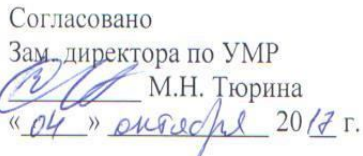 Согласовано
Зам. директора по УМР
М.Н. Тюрина
«04» октября 2017 г.